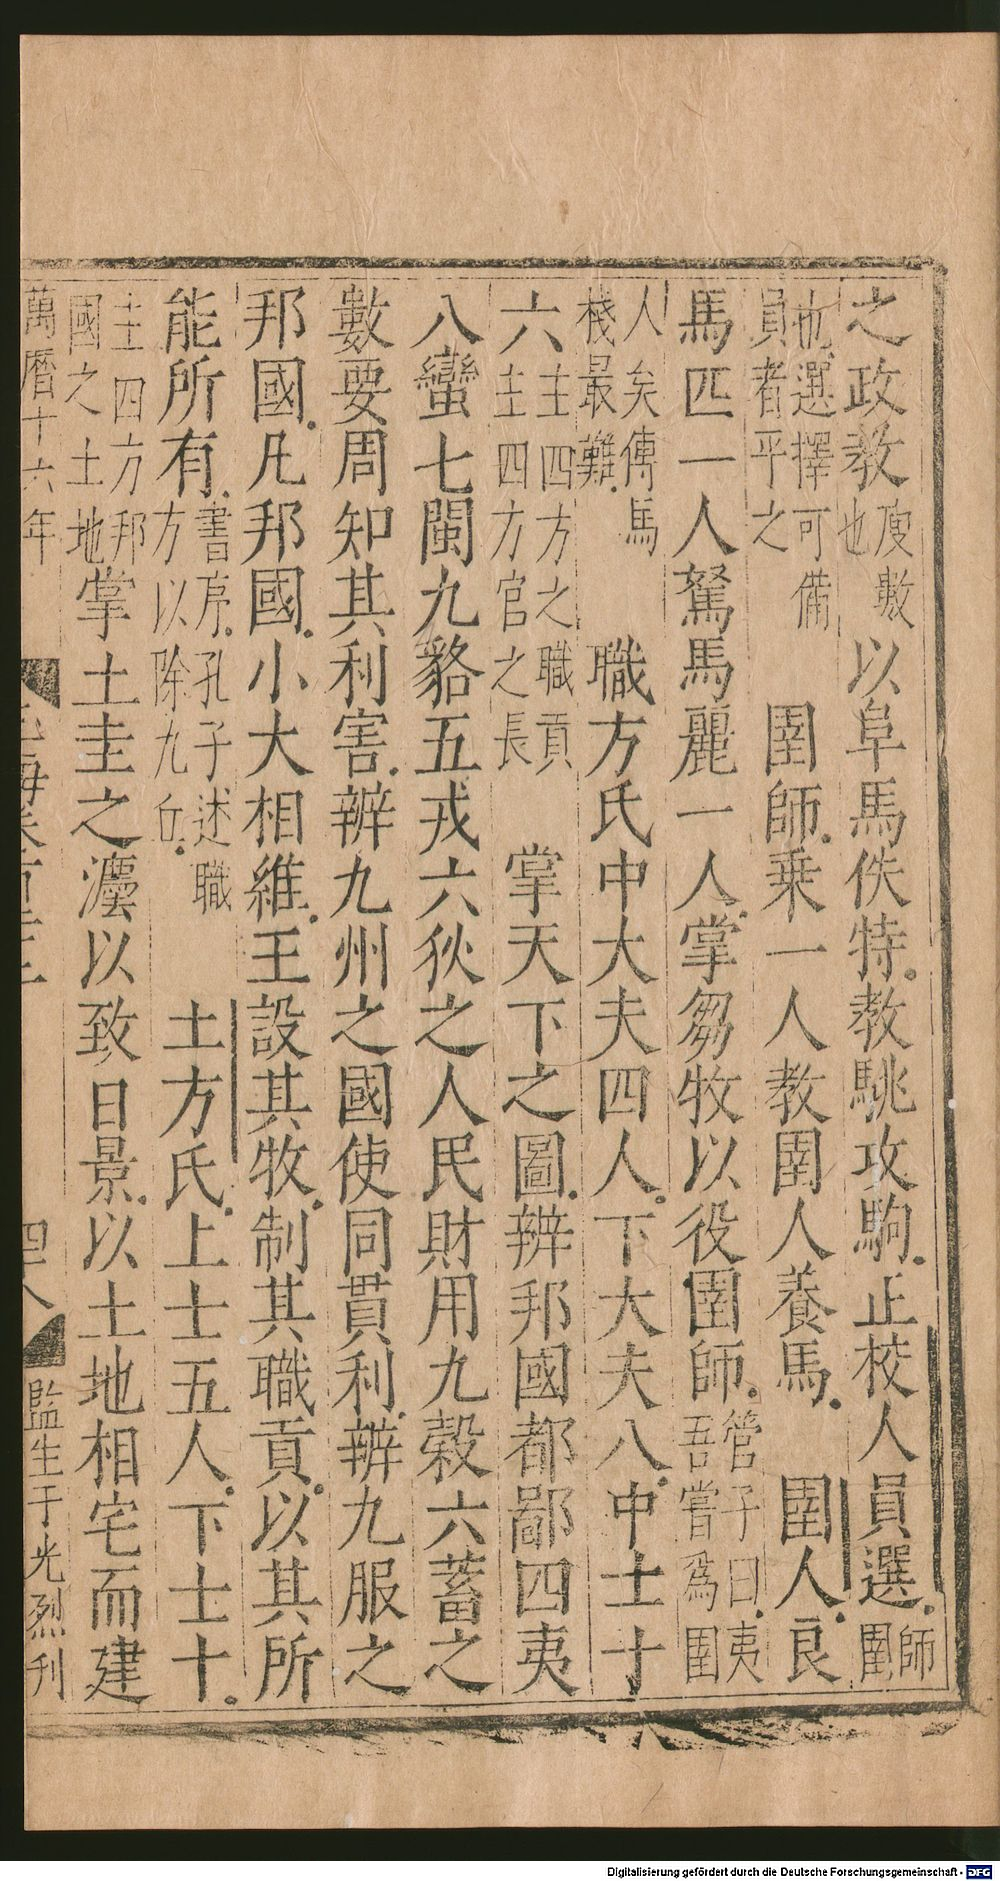 之政教廋數也以阜馬佚特教駣攻駒正校人員選師圉
也選擇可備員者平之圉師乗一人教圉人養馬圉人良
馬匹一人駑馬麗一人掌芻牧以役圉師管子曰夷吾嘗爲圉
人矣傅馬棧最難職方氏中大夫四人下大夫八中士十
六主四方之職貢主四方官之長掌天下之圖辨邦國都鄙四夷
八蠻七閩九貉五戎六狄之人民財用九穀六蓄之
數要周知其利害辨九州之國使同貫利辨九服之
邦國凡邦國小大相維王設其牧制其職貢以其所
能所有書序孔子述職方以除九丘土方氏上士五人下士十
主四方邦國之土地掌土圭之灋以致日景以土地相宅而建
萬曆十六年 四八 監生于光烈刊
Digitalisierung gefördert durch die Deutsche Forschungsgemeinschaft - DFG